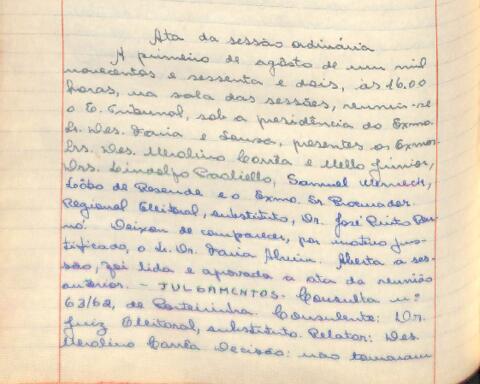 Ata da sessão ordinária
A primeiro de agôsto de um mil
novecentos e sessenta e dois, às 16.00
horas, na sala das sessões, reuniu-se
o E. Tribunal, sob a presidência do Exmo.
Sr. Des. Faria e Sousa, presentes os Exmos.
Srs. Des. Merolino Corrêa e Mello Júnior,
Drs. Lindolfo Paoliello, Samuel Werneck,
Lôbo de Resende e o Exmo. Sr. Procurador
Regional Eleitoral, substituto, Dr. José Pinto
Deixou de comparecer, por motivo jus-
tificado, o Sr. Dr. Faria Alvim. Aberta a ses-
são, foi lida e aprovada a ata da reunião
anterior. - JULGAMENTOS - Consulta nº
63/62, de Porteirinha. Consulente: Dr.
Juiz Eleitoral, substituto. Relator: Des.
Merolino Corrêa Decisão: não tomaram